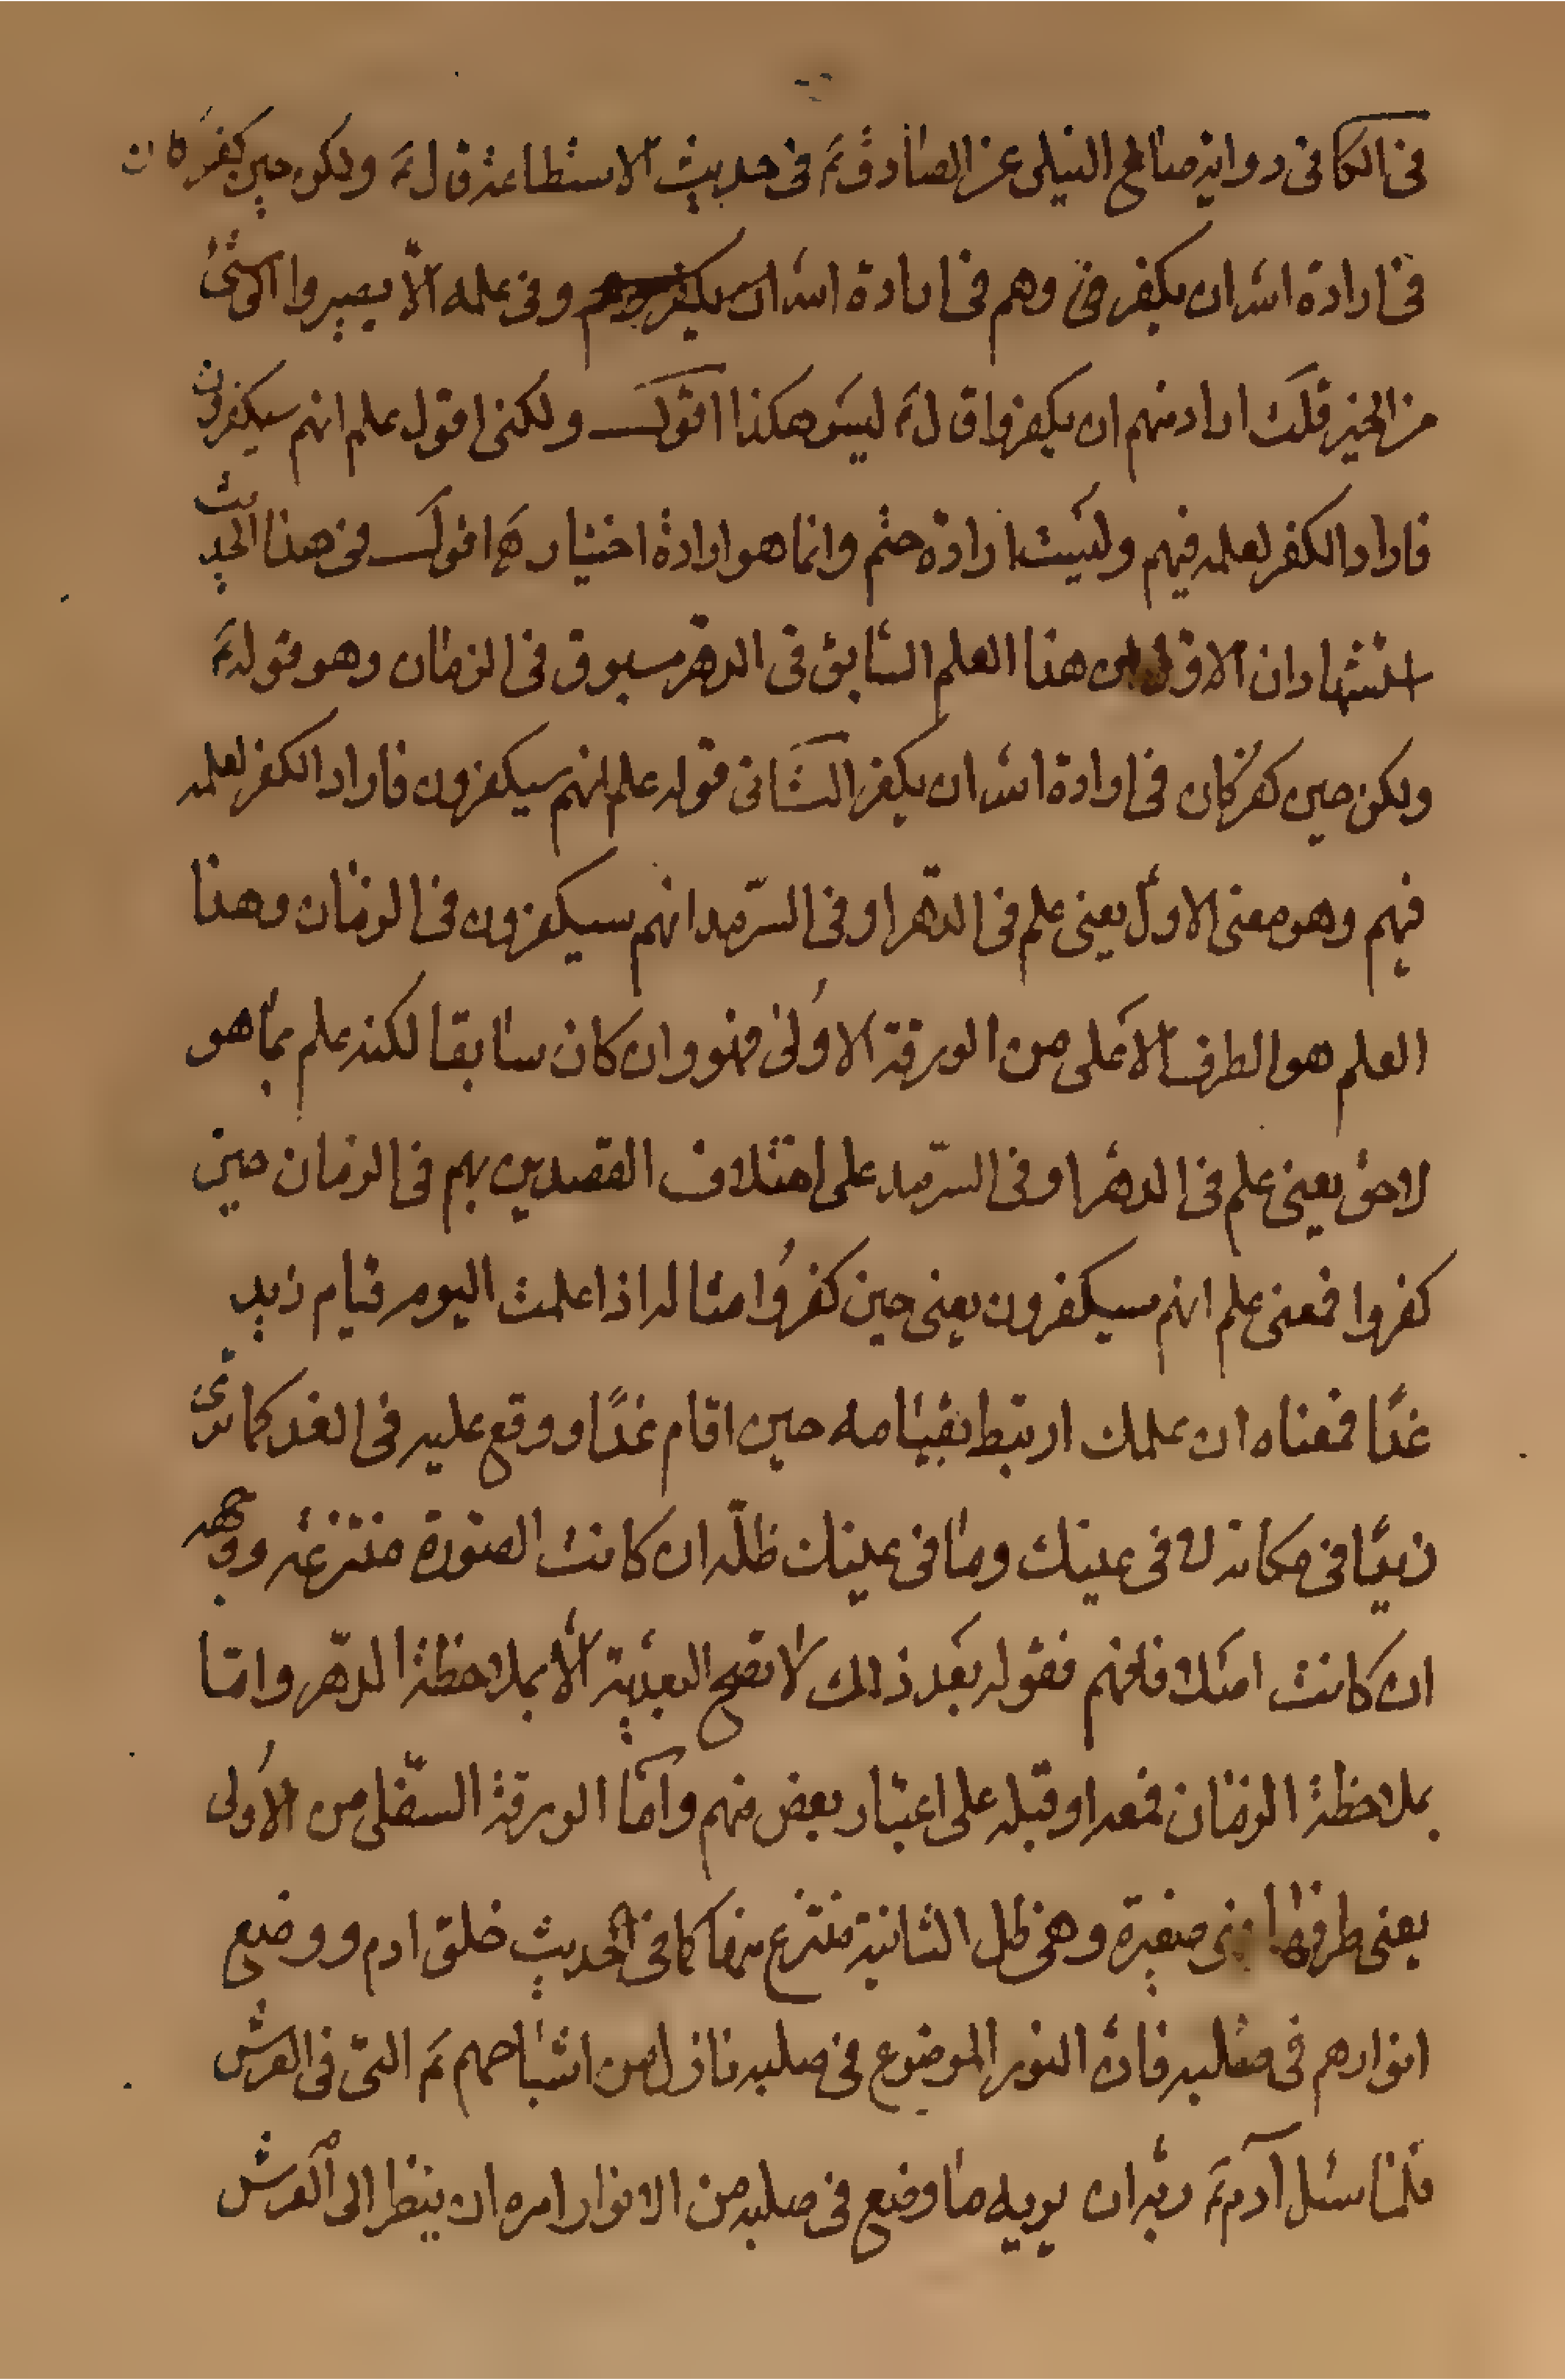 فى الكافى رواية صالح النيلى عن الصادق ع فى حديث الاستطاعة قال ع ولكن حين كفر كان
فى ارادة الله ان يكفر وهم فى ارادة الله وفى علمه الا يصيروا الى شئ
من الخير قلت اراد منهم ان يكفروا قال ع ليس هكذا اقول ولكنى اقول علم انهم سيكفرون
فاراد الكفر لعلمه فيهم وليست ارادة حتم وانما هو ارادة اختيار اقول فى هذا الحديث
استشهادان الاول هذا العلم السابق فى الدهر مسبوق فى الزمان وهو قوله ع
ولكن حين كفر كان فى ارادة الله ان يكفر الثانى قوله علم انهم سيكفرون فاراد الكفر لعلمه
فيهم وهو معنى الاول يعنى علم فى الدهر او فى السرمد انهم سيكفرون فى الزمان وهذا
العلم هو الطرف الاعلى من الورقة الاولى فهو وان كان سابقا لكنه علم بما هو
لاحق يعنى علم فى الدهر او فى السرمد على اختلاف القصدين بهم فى الزمان حين
كفروا فمعنى علم انهم سيكفرون يعنى حين كفروا مثاله اذا علمت اليوم قيام زيد
غدًا فمعناه ان علمك ارتبط بقيامه حين اقام غدًا ووقع عليه فى الغد كما ترى
زيدًا فى مكانه لا فى عينك وما فى عينك ظله ان كانت الصورة منتزعة ووجهه
ان كانت اصلا فافهم فقوله بعد ذلك لا تصح البعدية الا بملاحظة الدهر واما
بملاحظة الزمان فمعه او قبله على اعتبار بعض منهم واما الورقة السفلى من الاولى
يعنى طرفها صغيرة وهى ظل الثانية منتزع منها كما فى الحديث خلق ادم ووضع
انوارهم فى صلبه فان النور الموضوع فى صلبه نازل من اشباحهم ع التى فى العرش
فلما سئل آدم ع ربه ان يريه ما وضع فى صلبه من الانوار امره ان ينظر الى العرش